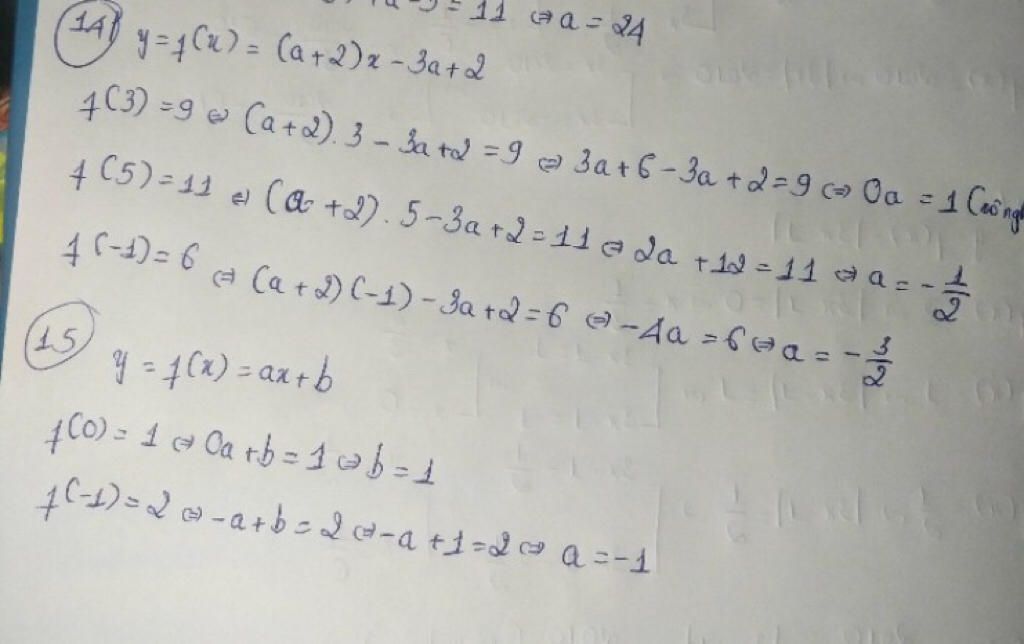 = 11 ⇔ a = 24
14) y = f(x) = (a+2)x - 3a+2
f(3) = 9 ⇔ (a+2).3 - 3a+2 = 9 ⇔ 3a+6-3a+2=9 ⇔ 0a = 1
f(5) = 11 ⇔ (a+2).5-3a+2=11 ⇔ 2a+12=11 ⇔ a = -1/2
f(-1) = 6 ⇔ (a+2)(-1)-3a+2=6 ⇔ -4a=6 ⇔ a = -3/2
15
y = f(x) = ax+b
f(0) = 1 ⇔ 0a+b=1 ⇔ b=1
f(-1) = 2 ⇔ -a+b=2 ⇔ -a+1=2 ⇔ a=-1